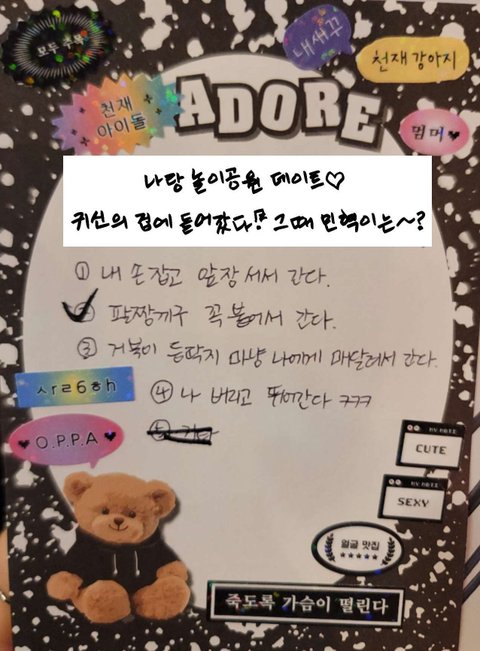 모두 주목
내새꾸
천재강아지
천재
아이돌
ADORE
멈머
나랑 놀이공원 데이트♡
귀신의 집에 들어갔다!? 그때 민혁이는~?
① 내 손잡고 앞장서서 간다.
② 팔짱께구 꼭 붙어서 간다.
③ 거북이 등딱지 마냥 나에게 매달려서 간다.
④ 나 버리고 뛰어간다 ㅋㅋㅋ
ㅅrㄹ6ㅎh
O.P.P.A
CUTE
SEXY
얼굴 맛집
★★★★★
죽도록 가슴이 떨린다